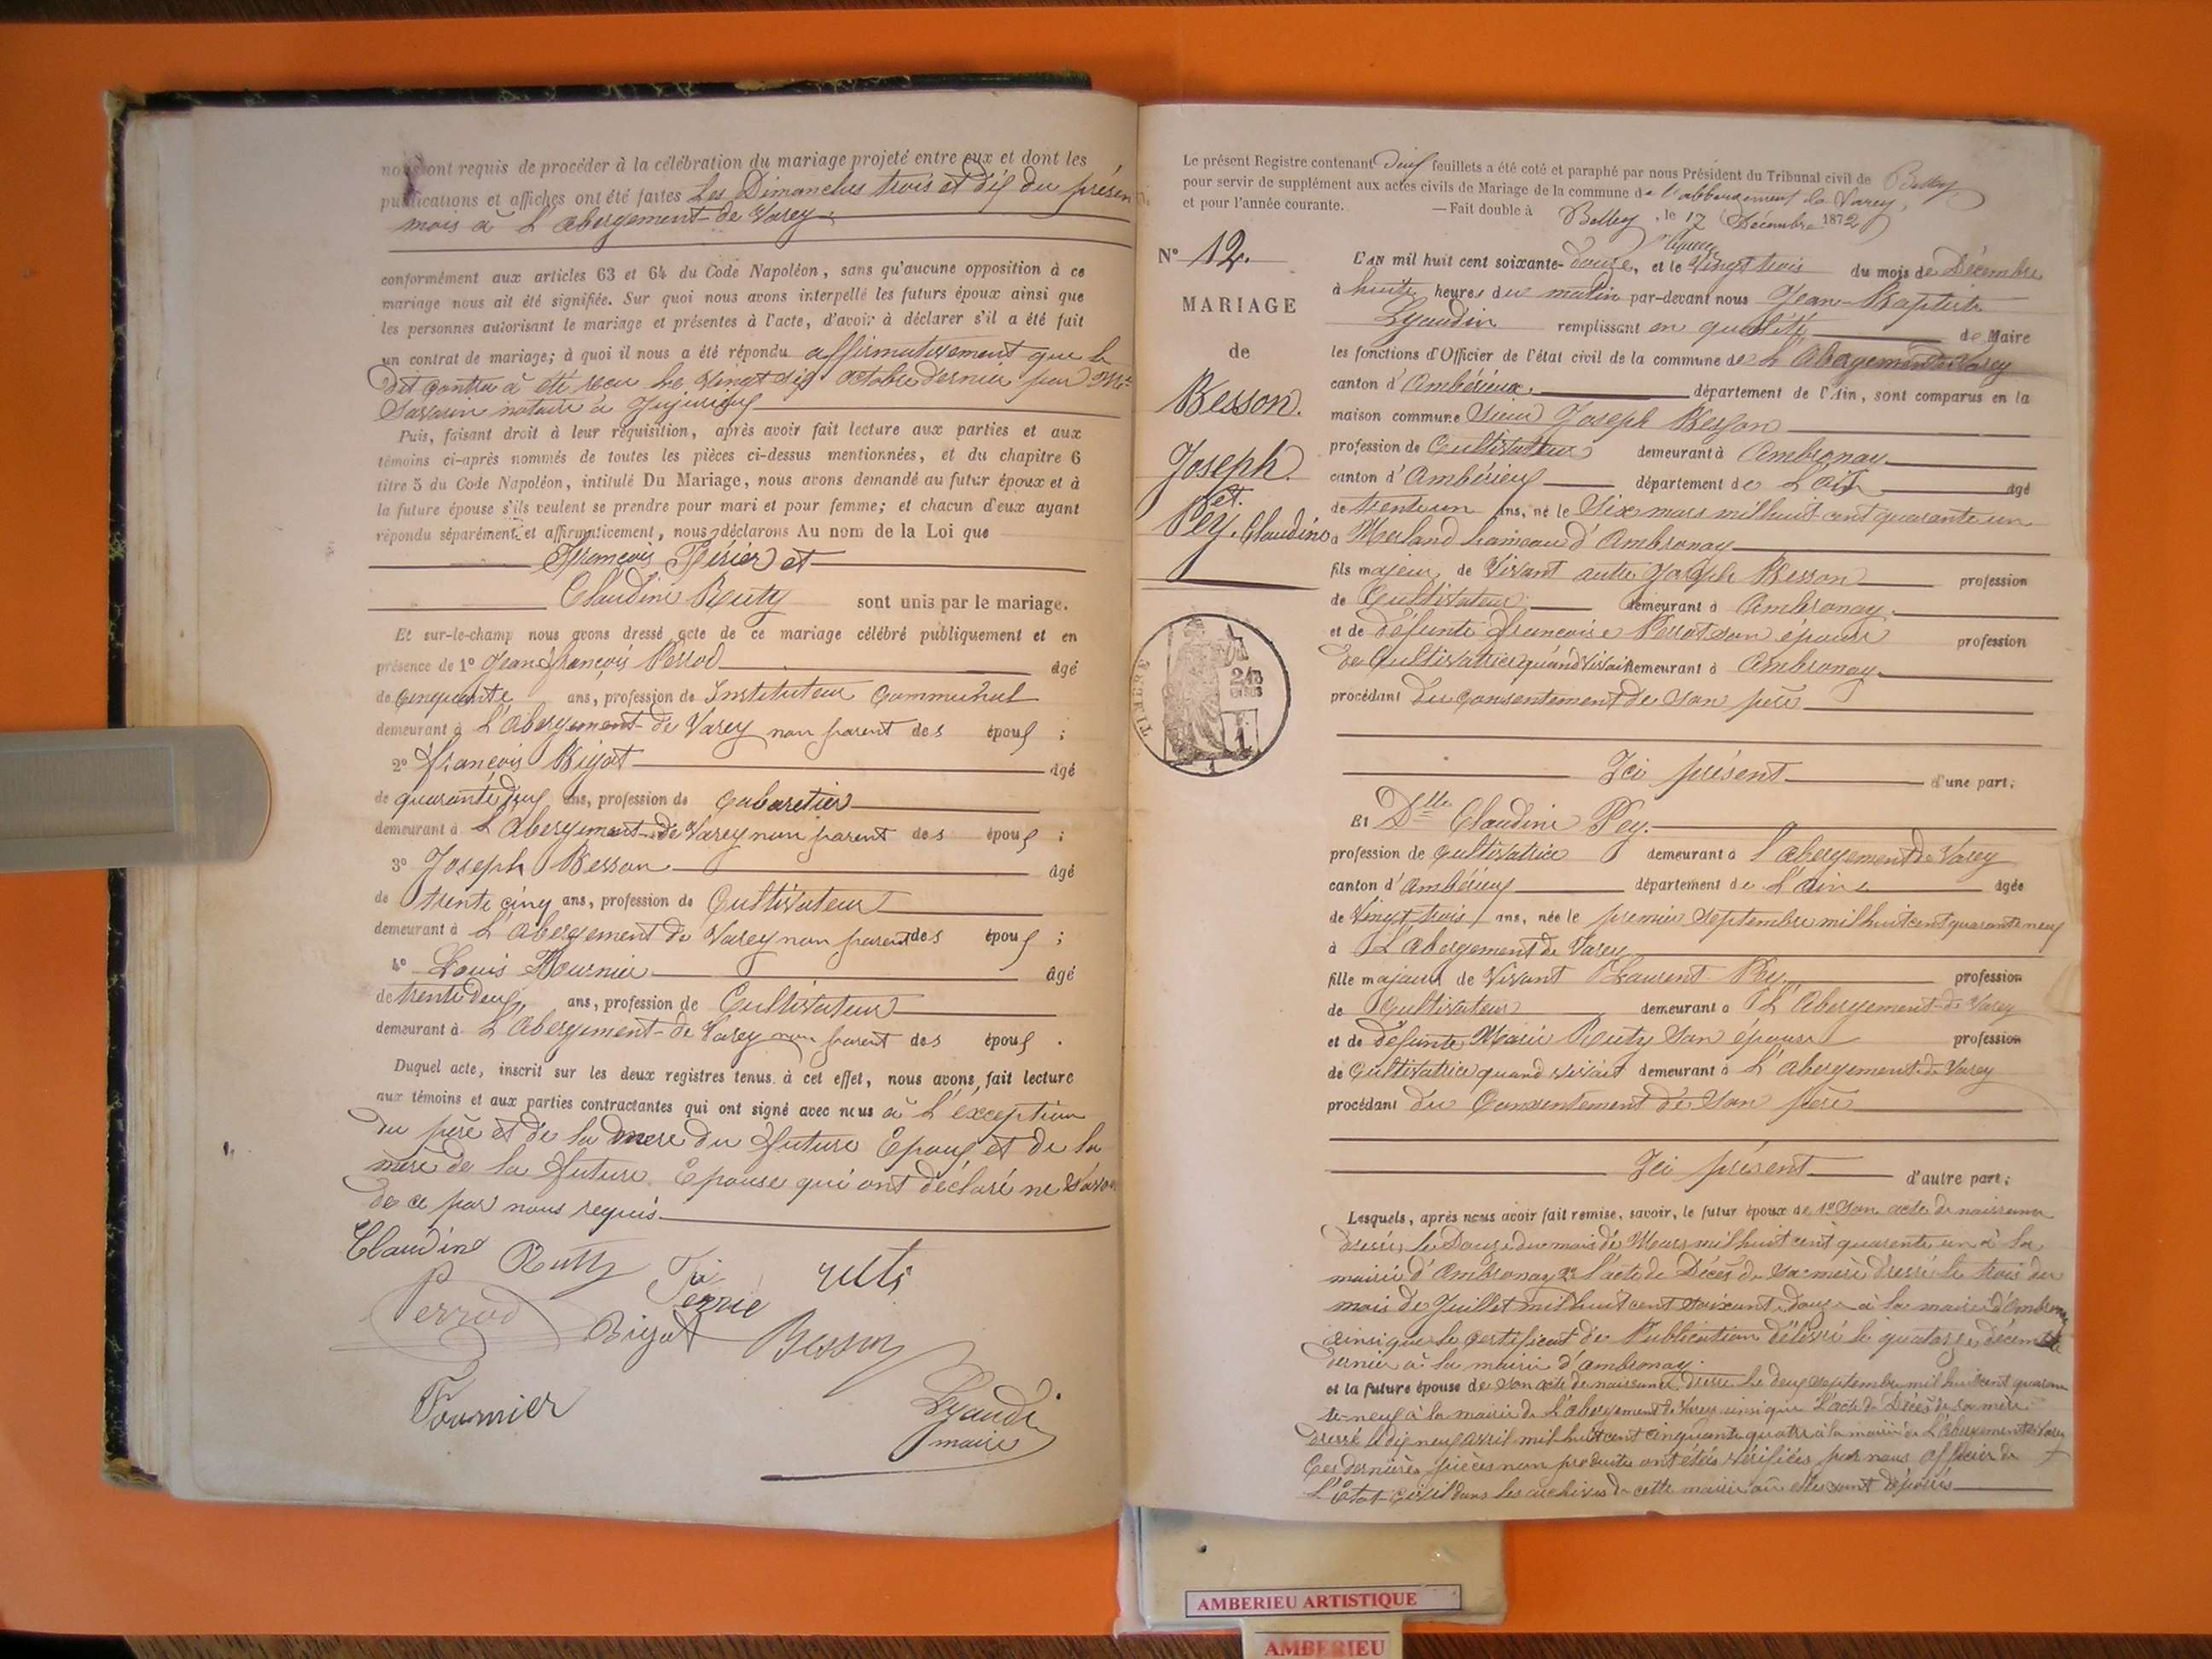 nous ont requis de procéder à la célébration du mariage projeté entre eux et dont les
publications et affiches ont été faites Les Dimanches trois et dix du présent
mois à L'Abergement-de Varey
conformément aux articles 63 et 64 du Code Napoléon, sans qu'aucune opposition à ce
mariage nous ait été signifiée. Sur quoi nous avons interpellé les futurs époux ainsi que
les personnes autorisant le mariage et présentes à l'acte, d'avoir à déclarer s'il a été fait
un contrat de mariage; à quoi il nous a été répondu affirmativement que le
dit contra à été reçu le Vingt six octobre dernier par Me
Savarin notaire à Jujurieux
Puis, faisant droit à leur réquisition, après avoir fait lecture aux parties et aux
témoins ci-après nommés de toutes les pièces ci-dessus mentionnées, et du chapitre 6
titre 5 du Code Napoléon, intitulé Du Mariage, nous avons demandé au futur époux et à
la future épouse s'ils veulent se prendre pour mari et pour femme; et chacun d'eux ayant
répondu séparément et affirmativement, nous déclarons Au nom de la Loi que
François et
Claudine Reuty sont unis par le mariage.
Et sur-le-champ nous avons dressé acte de ce mariage célébré publiquement et en
présence de 1° Jean françois Perrod âgé
de cinquante ans, profession de Instituteur Communal
demeurant à L'Abergement-de Varey non parent des époux ;
2° françois Bigot âgé
de quarante deux ans, profession de Cabaretier
demeurant à L'abergement-de Varey non parent des époux ;
3° Joseph Besson âgé
de trente cinq ans, profession de Cultivateur
demeurant à L'abergement de Varey non parent des époux ;
4° Louis Fournier âgé
de trente deux ans, profession de Cultivateur
demeurant à L'Abergement-de Varey non parent des époux .
Duquel acte, inscrit sur les deux registres tenus à cet effet, nous avons fait lecture
aux témoins et aux parties contractantes qui ont signé avec nous à L'exception
du père et de la mere du futur Epoux et de la
mère de la future Epouse qui ont déclaré ne savoir
de ce par nous requis
Claudine
Perrod Bigot Besson
Fournier Lyaudi
maire
Le présent Registre contenant deux feuillets a été coté et paraphé par nous Président du Tribunal civil de Belley
pour servir de supplément aux actes civils de Mariage de la commune de l'abbergement de Varey,
et pour l'année courante. — Fait double à Belley, le 17 Décembre 1872
N° 12.
MARIAGE
de
Besson.
Joseph.
et.
Pey. Claudine
TIMBRE
L'AN mil huit cent soixante-douze, et le Vingt trois du mois de Décembre
à huite heures du matin par-devant nous Jean-Baptiste
Lyaudin remplissant en qualité de Maire
les fonctions d'Officier de l'état civil de la commune de L'Abergement de Varey
canton d'Ambérieux département de l'Ain, sont comparus en la
maison commune Sieur Joseph Besson
profession de Cultivateur demeurant à Ambronay
canton d'Ambérieux département de L'ain âgé
de trente un ans, né le Six mars mil huit cent quarante un
à Merland hameau d'Ambronay
fils majeur de Vivant autre Joseph Besson profession
de Cultivateur demeurant à Ambronay.
et de défunte françoise Perrot son épouse profession
de Cultivatrice quand vivait demeurant à Ambronay
procédant du consentement de son père
Ici présent d'une part;
Et Dlle Claudine Pey.
profession de Cultivatrice demeurant à l'abergement de Varey
canton d'Ambérieux département de L'ain âgée
de Vingt trois ans, née le premier Septembre mil huit cent quarante neuf
à L'Abergement de Varey
fille majeure de Vivant Laurent Pey profession
de Cultivateur demeurant à L'Abergement-de Varey
et de défunte Marie Reuty son épouse profession
de Cultivatrice quand vivait demeurant à L'Abergement de Varey
procédant du Consentement de Son père
Ici présent d'autre part;
Lesquels, après nous avoir fait remise, savoir, le futur époux de 1° Son acte de naissance
dressé le Douze du mois de Mars mil huit cent quarante un à la
mairie d'Ambronay 2° l'acte de Décès de sa mère dressé le trois du
mois de Juillet mil huit cent soixante douze à la mairie d'Ambronay
ainsi que le certificat de Publication délivré le quatorze décembre
dernier à la mairie d'ambronay.
et la future épouse de son acte de naissance dressé le deux septembre mil huit cent quaran
te-neuf à la mairie de L'abergement de Varey ainsi que L'acte de Décès de sa mère
dressé le dix neuf avril mil huit cent cinquante quatre à la mairie de L'Abergement de Varey
Ces dernières pièces non produites ont étés vérifiées par nous officier de
L'Etat-Civil dans les archives de cette mairie où elles sont déposées
AMBERIEU ARTISTIQUE
AMBERIEU